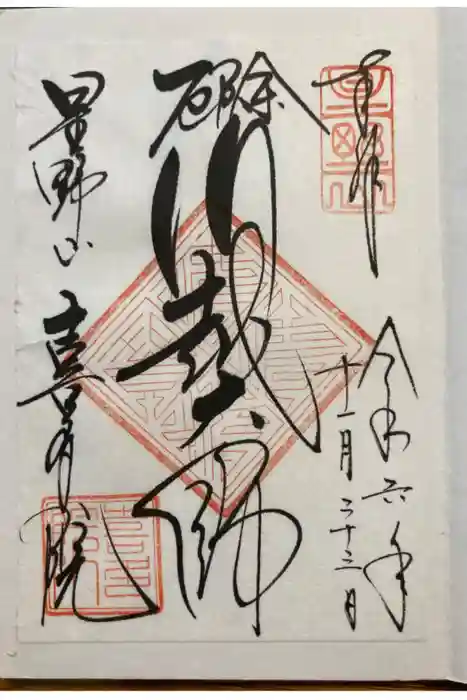 奉拝
令和六年
十一月二十三日
厄除
川越大師
星野山
喜多院